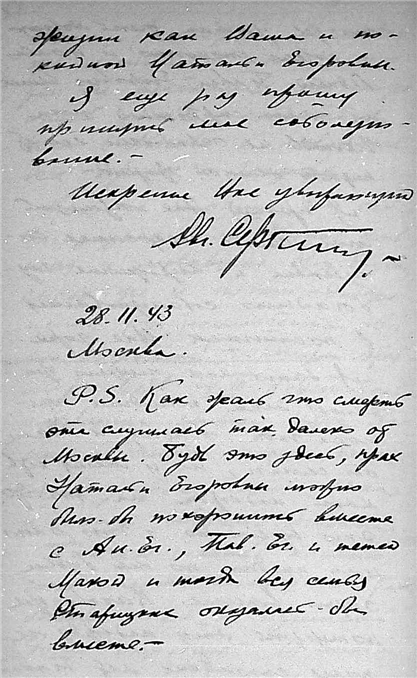 жизни как Ваша и по-
койной Натальи Егоровны.
Я еще раз прошу
принять мое соболезно-
вание. –
Искренне Вас уважающий
28.11.43
Москва.
P.S. Как жаль что смерть
эта случилась так далеко от
Москвы. Будь это здесь, прах
Натальи Егоровны можно
было-бы похоронить вместе
с Ан. Ег., Пав. Ег. и тетей
Машей и тогда вся семья
Старицких оказалась-бы
вместе. –